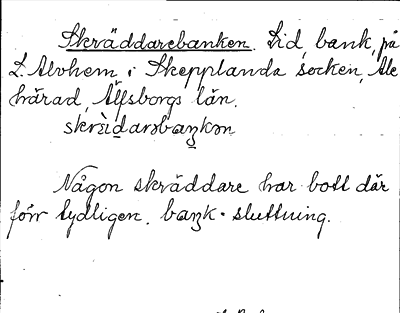 Skräddarebanken. Lid, bank, på
L. Alvhem, i Skepplanda socken, Ale
härad, Älfsborgs län.
Någon skräddare har bott där
förr tydligen. bank = sluttning.